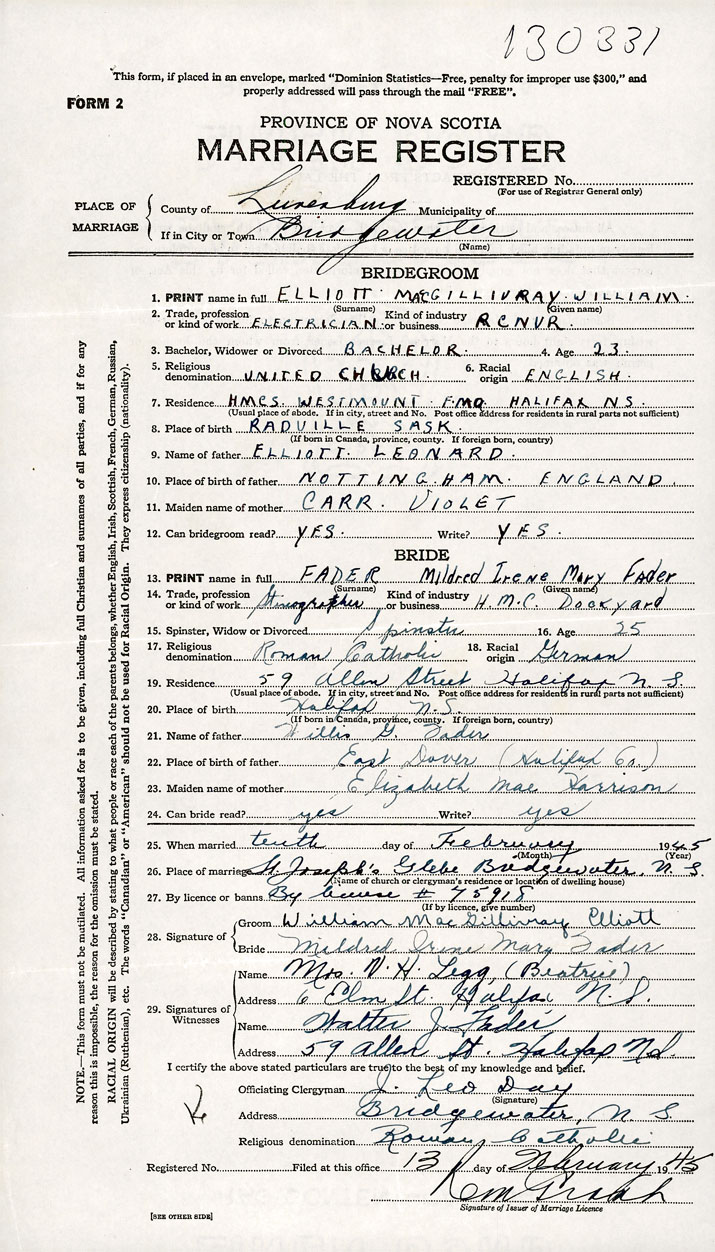 130331
This form, if placed in an envelope, marked "Dominion Statistics—Free, penalty for improper use $300," and
properly addressed will pass through the mail "FREE".
FORM 2
PROVINCE OF NOVA SCOTIA
MARRIAGE REGISTER
REGISTERED No.
(For use of Registrar General only)
PLACE OF MARRIAGE
County of Lunenburg Municipality of
If in City or Town Bridgewater
(Name)
BRIDEGROOM
1. PRINT name in full ELLIOTT MACGILLIVRAY WILLIAM.
(Surname) (Given name)
2. Trade, profession or kind of work ELECTRICIAN. Kind of industry or business RCNVR.
3. Bachelor, Widower or Divorced BACHELOR. 4. Age 23.
5. Religious denomination UNITED CHURCH. 6. Racial origin ENGLISH.
7. Residence HMCS. WESTMOUNT. FMO HALIFAX NS.
(Usual place of abode. If in city, street and No. Post office address for residents in rural parts not sufficient)
8. Place of birth RADVILLE SASK.
(If born in Canada, province, county. If foreign born, country)
9. Name of father ELLIOTT LEONARD.
10. Place of birth of father NOTTINGHAM. ENGLAND.
11. Maiden name of mother CARR. VIOLET
12. Can bridegroom read? YES. Write? YES.
BRIDE
13. PRINT name in full FADER Mildred Irene Mary Fader
(Surname) (Given name)
14. Trade, profession or kind of work Stenographer Kind of industry or business H.M.C. Dockyard
15. Spinster, Widow or Divorced Spinster 16. Age 25
17. Religious denomination Roman Catholic 18. Racial origin German
19. Residence 59 Allen Street Halifax N.S.
(Usual place of abode. If in city, street and No. Post office address for residents in rural parts not sufficient)
20. Place of birth Halifax N.S.
(If born in Canada, province, county. If foreign born, country)
21. Name of father Willis G. Fader
22. Place of birth of father East Dover (Halifax Co.)
23. Maiden name of mother Elizabeth Mae Harrison
24. Can bride read? yes Write? yes
25. When married tenth day of February 1945
(Month) (Year)
26. Place of marriage St. Joseph's Glebe Bridgewater, N.S.
(Name of church or clergyman's residence or location of dwelling house)
27. By licence or banns By license # 75918
(If by licence, give number)
28. Signature of
Groom William MacGillivray Elliott
Bride Mildred Irene Mary Fader
29. Signatures of Witnesses
Name Mrs. V. H. Legg (Beatrice)
Address 6 Elm St. Halifax N.S.
Name Walter J. Fader
Address 59 Allen St. Halifax N.S.
I certify the above stated particulars are true to the best of my knowledge and belief.
Officiating Clergyman J. Leo Day
(Signature)
Address Bridgewater, N.S.
Religious denomination Roman Catholic
Registered No. Filed at this office 13 day of February 1945
Signature of Issuer of Marriage Licence
[SEE OTHER SIDE]
NOTE.—This form must not be mutilated. All information asked for is to be given, including full Christian and surnames of all parties, and if for any
reason this is impossible, the reason for the omission must be stated.
RACIAL ORIGIN will be described by stating to what people or race each of the parents belongs, whether English, Irish, Scottish, French, German, Russian,
Ukrainian (Ruthenian), etc. The words "Canadian" or "American" should not be used for Racial Origin. They express citizenship (nationality).